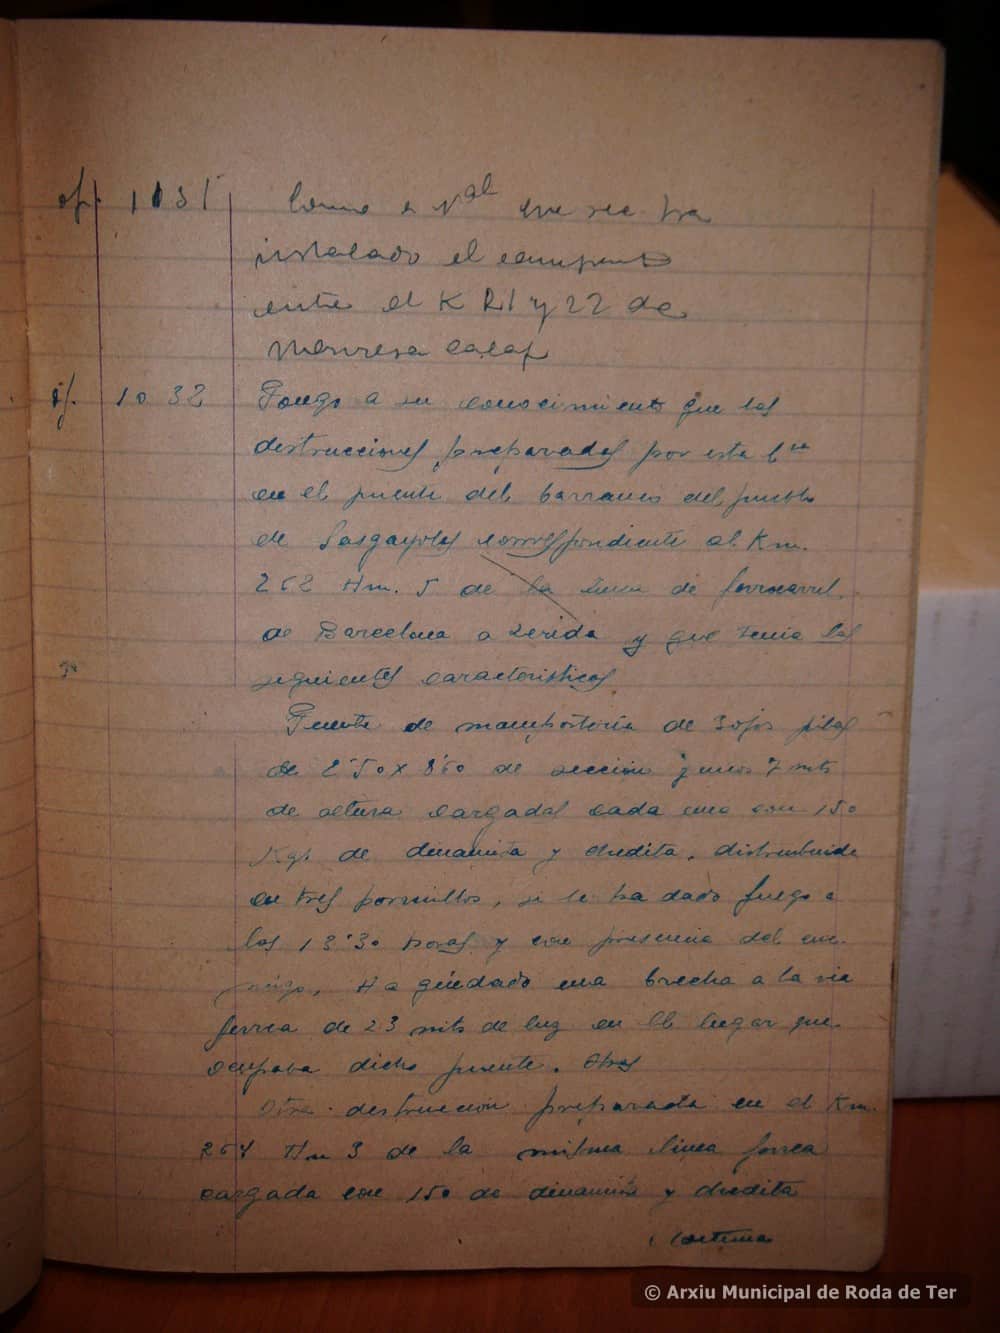 of. 1031 Como a Vªl que se ha
instalado el campamento
entre el K 21 y 22 de
Manresa Calaf
of. 1032 Pongo a su conocimiento que las
destrucciones preparadas por esta
en el puente del barranco del pueblo
de Sasgayolas correspondiente al Km.
262 Hm. 5 de la linea de ferrocarril
de Barcelona a Lerida y que tenia las
siguientes caracteristicas
Puente de mamposteria de 3 ojos pilas
de 2'50 x 8'60 de sección y unos 7 mts
de altura cargadas cada una con 150
Kgs de dinamita y chedita, distribuida
en tres hornillos, se le ha dado fuego a
las 13'30 horas y con presencia del ene-
migo, Ha quedado una brecha a la via
ferrea de 23 mts de luz en el lugar que
ocupaba dicho puente.
Otra destruccion preparada en el Km.
264 Hm 3 de la misma linea ferrea
cargada con 150 de dinamita y chedita
© Arxiu Municipal de Roda de Ter